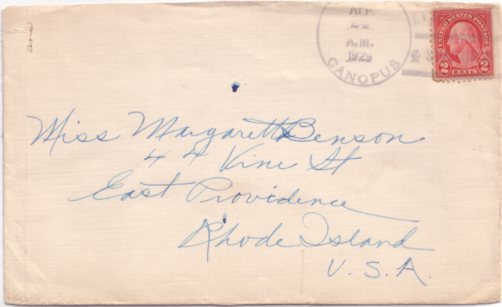 ans
APR
21
A.M.
1929
CANOPUS
UNITED STATES POSTAGE
2 CENTS 2
Miss Margarett Benson
44 Vine St
East Providence
Rhode Island
U.S.A.